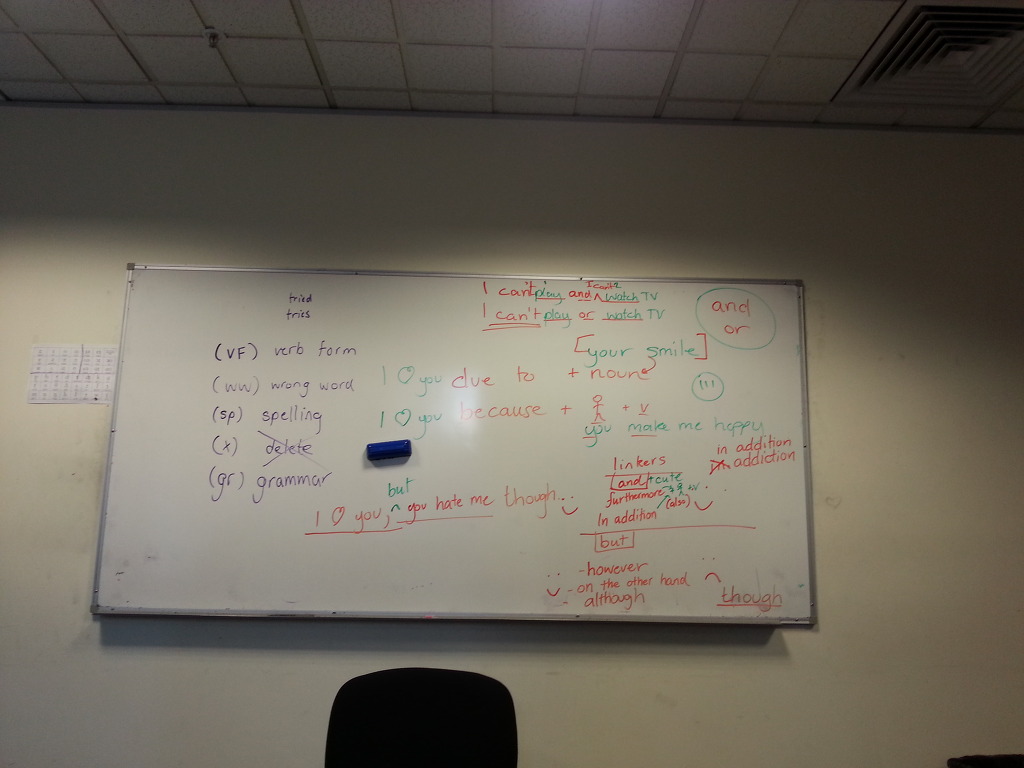 tried
tries
(VF) verb form
(ww) wrong word
(sp) spelling
(x) delete
(gr) grammar
I can't play and ^ I can't watch TV
I can't play or watch TV
and
or
[your smile]
I ♡ you due to + noun
I ♡ you because + + v
you make me happy
in addition
addiction
but
I ♡ you, ^ you hate me though
linkers
and + cute
furthermore
In addition (also)
but
- however
- on the other hand
- although
though